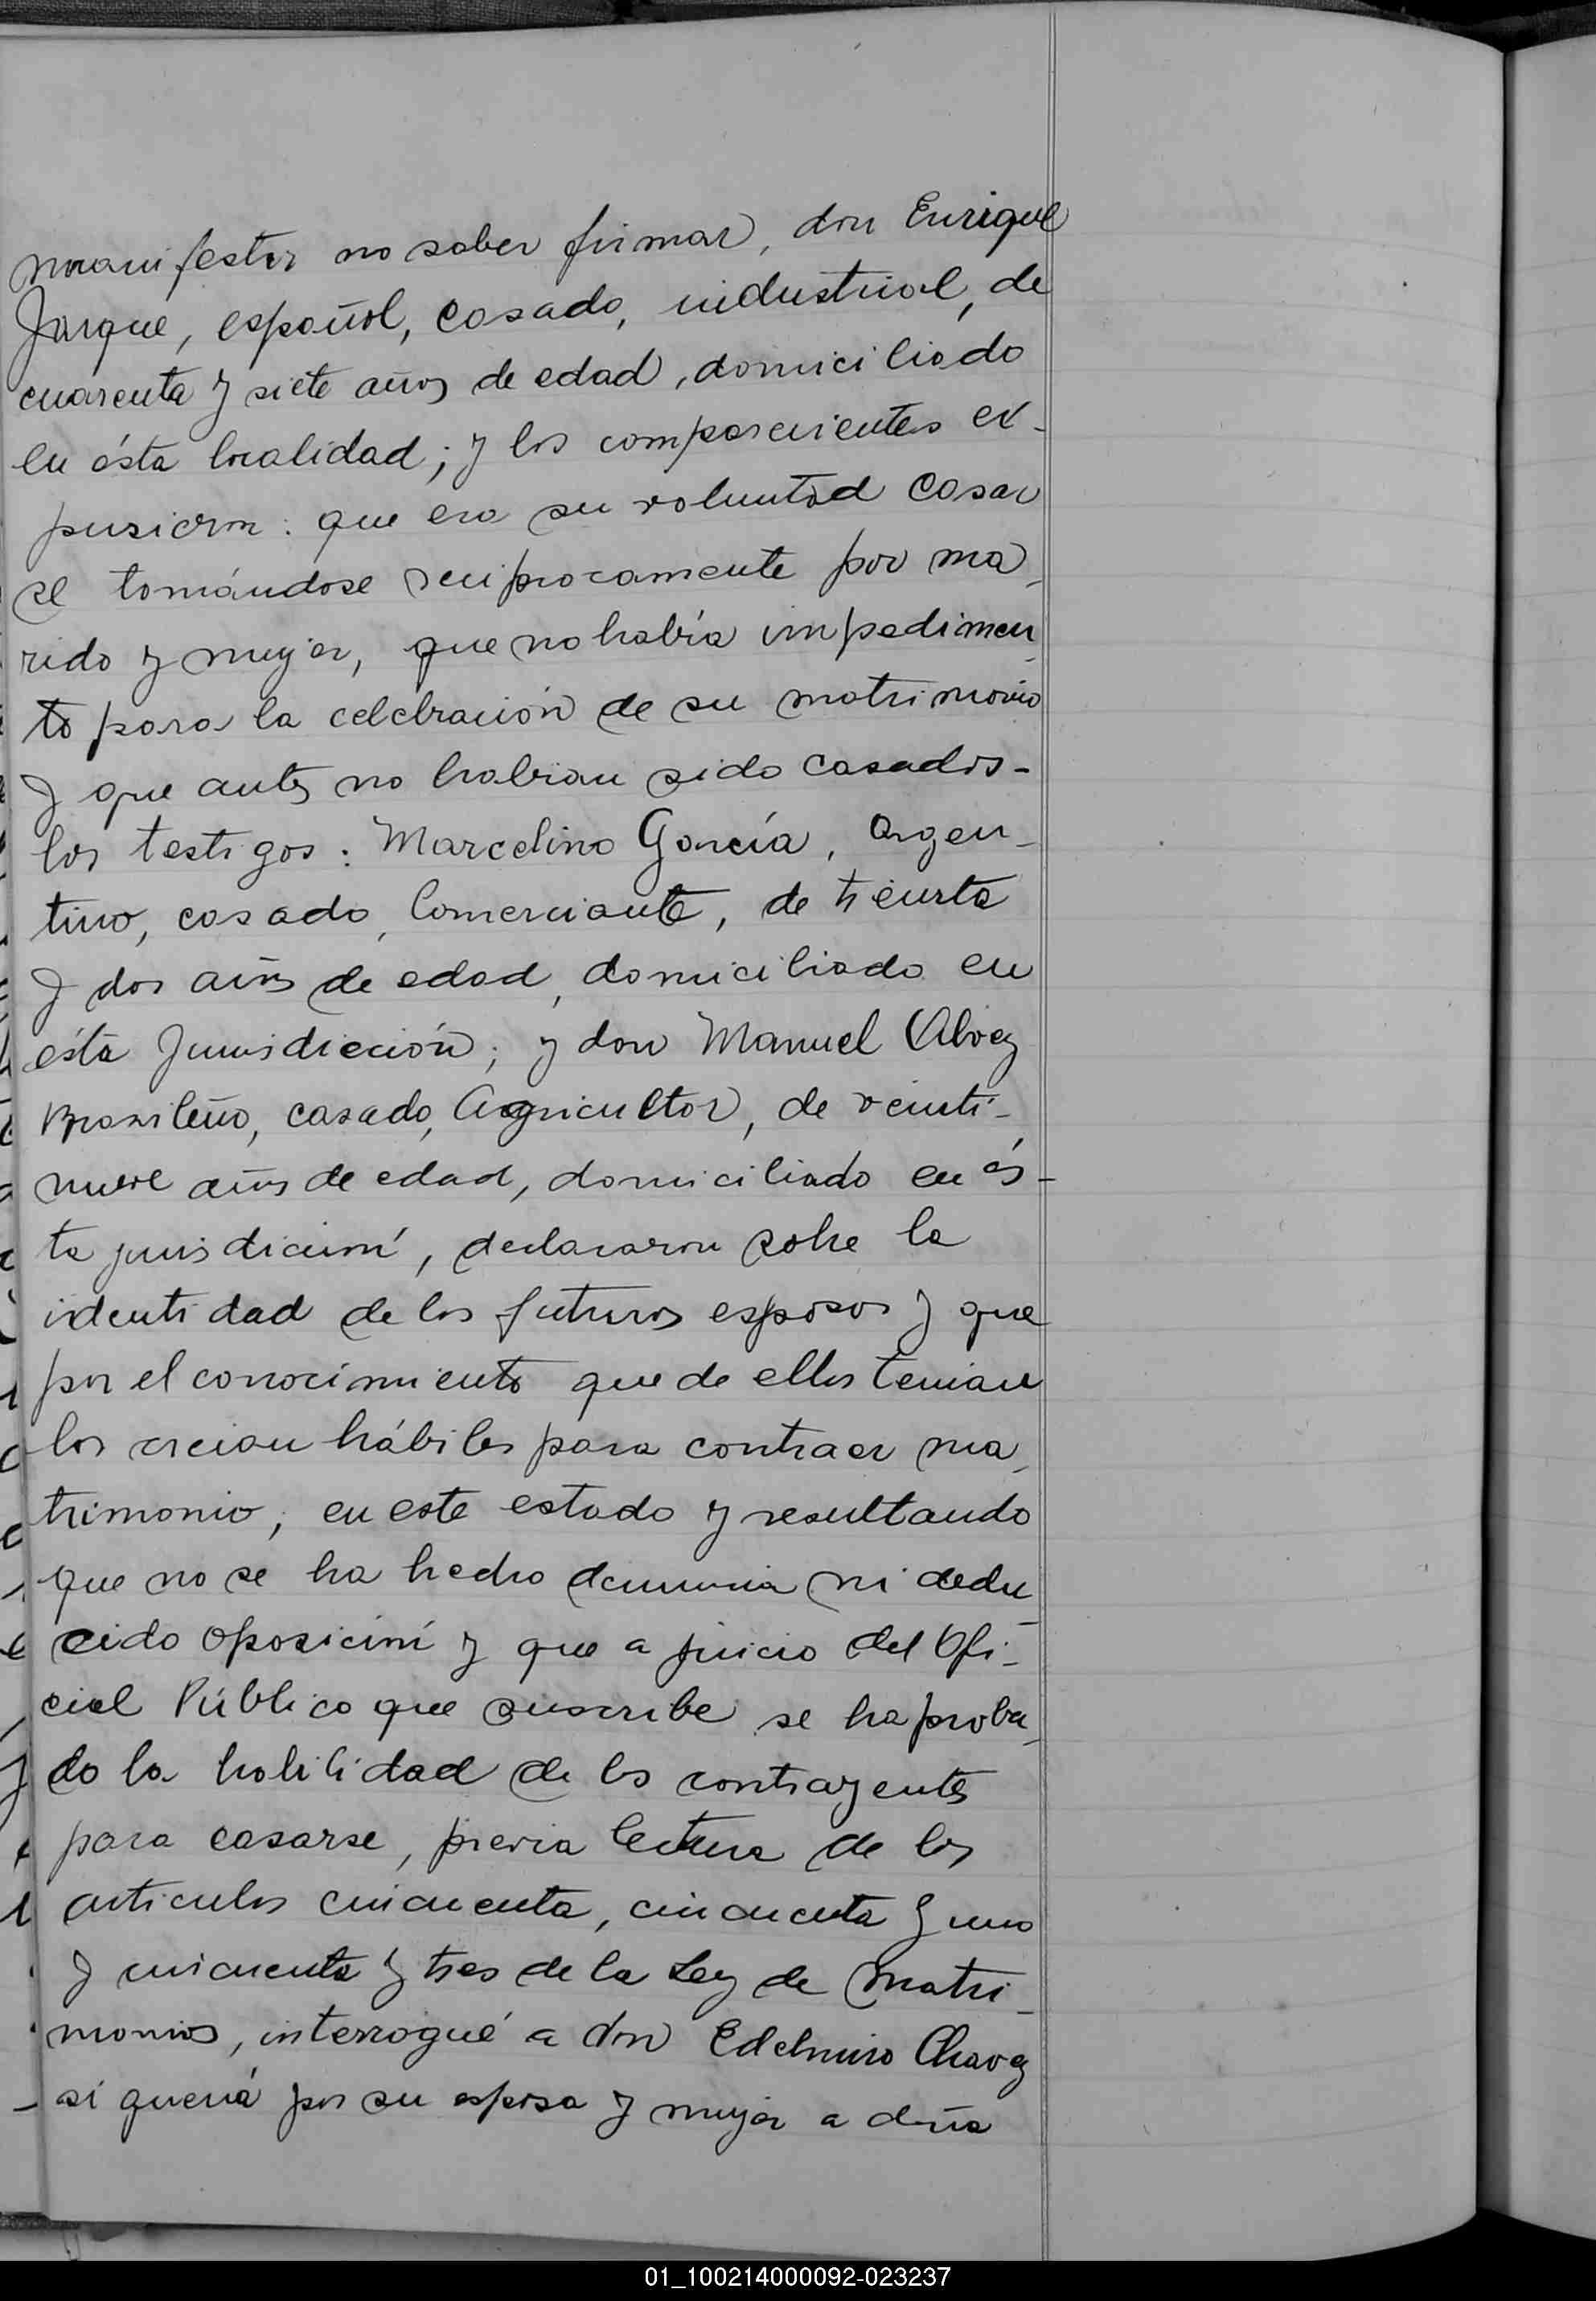 manifestar no saber firmar, don Enrique
Jarque, español, casado, industrial, de
cuarenta y siete años de edad, domiciliado
en ésta localidad; y los comparecientes ex-
pusieron: que era su voluntad casar
se tomándose reciprocamente por ma-
rido y mujer, que no había impedimen-
to para la celebración de su matrimonio
y que antes no habian sido casados-
los testigos: Marcelino García, Argen-
tino, casado, Comerciante, de treinta
y dos años de edad, domiciliado en
ésta Jurisdicción; y don Manuel Alvez
Brasileño, casado, Agricultor, de veinti-
nueve años de edad, domiciliado en és-
ta jurisdicción, declararon sobre la
identidad de los futuros esposos y que
por el conocimiento que de ellos tenian
los creian hábiles para contraer ma-
trimonio; en este estado y resultando
que no se ha hecho denuncia ni dedu-
cido oposición y que a juicio del Ofi-
cial Público que suscribe se ha proba-
do la habilidad de los contrayentes
para casarse, previa lectura de los
articulos cincuenta, cincuenta y uno
y cincuenta y tres de la Ley de Matri-
monios, interrogué a don Edelmiro Chavez
si quería por su esposa y mujer a doña
01_100214000092-023237